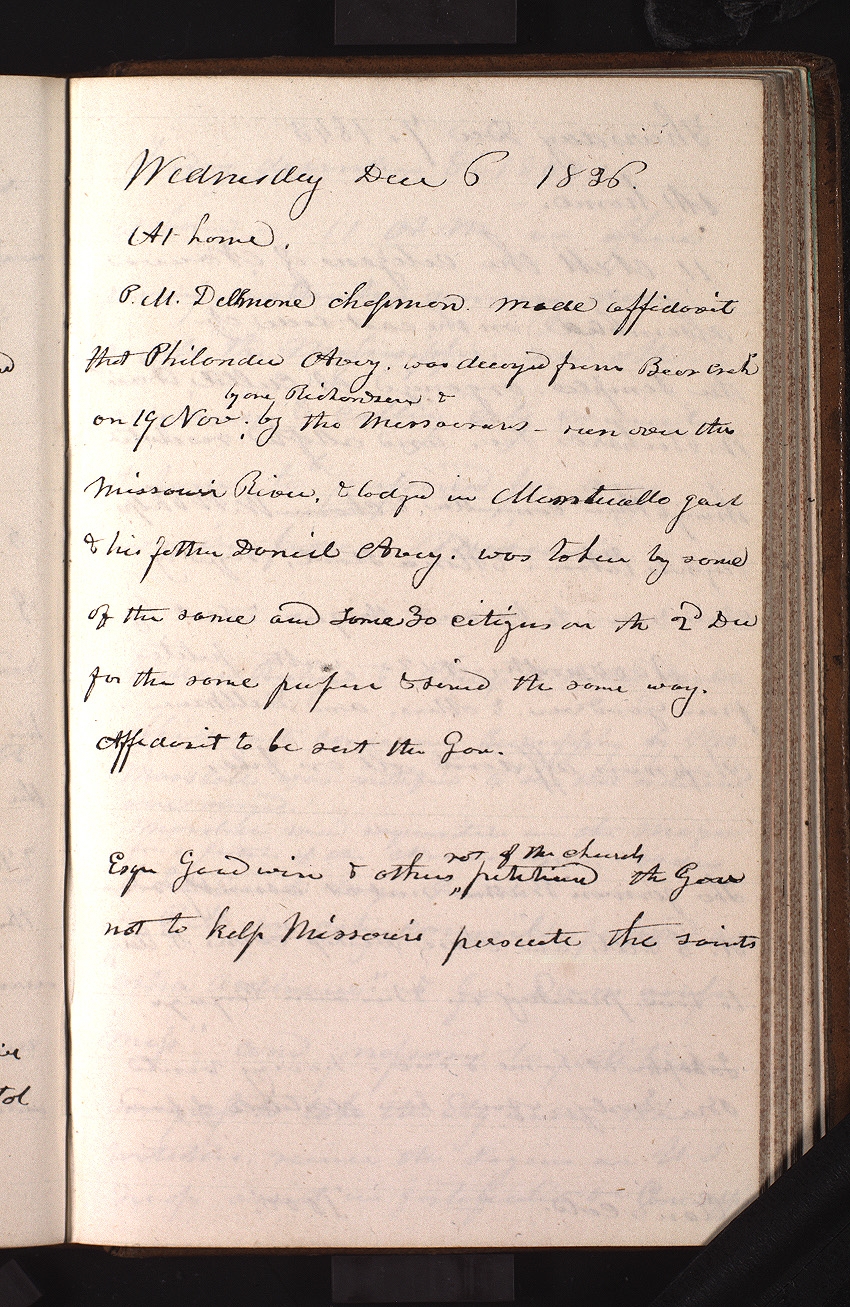 Wednesday Dec 6 1836.
At home.
P.M. Dellmore chapman. made affidavit
that Philander Avery. was decoyed from Bear creek
by one Richardson &
on 19 Nov. by the Missourians - run over the
Missouri River, & lodged in Monticello gaol
& his father Daniel Avery. was taken by some
of the same and some 30 citizens on th 2d Dec
for the same purpose & served the same way.
Affidavit to be sent the Gov.
not of the church
Esqu Goodwin & others petitiond th Gov
not to help Missouri persecute the saints